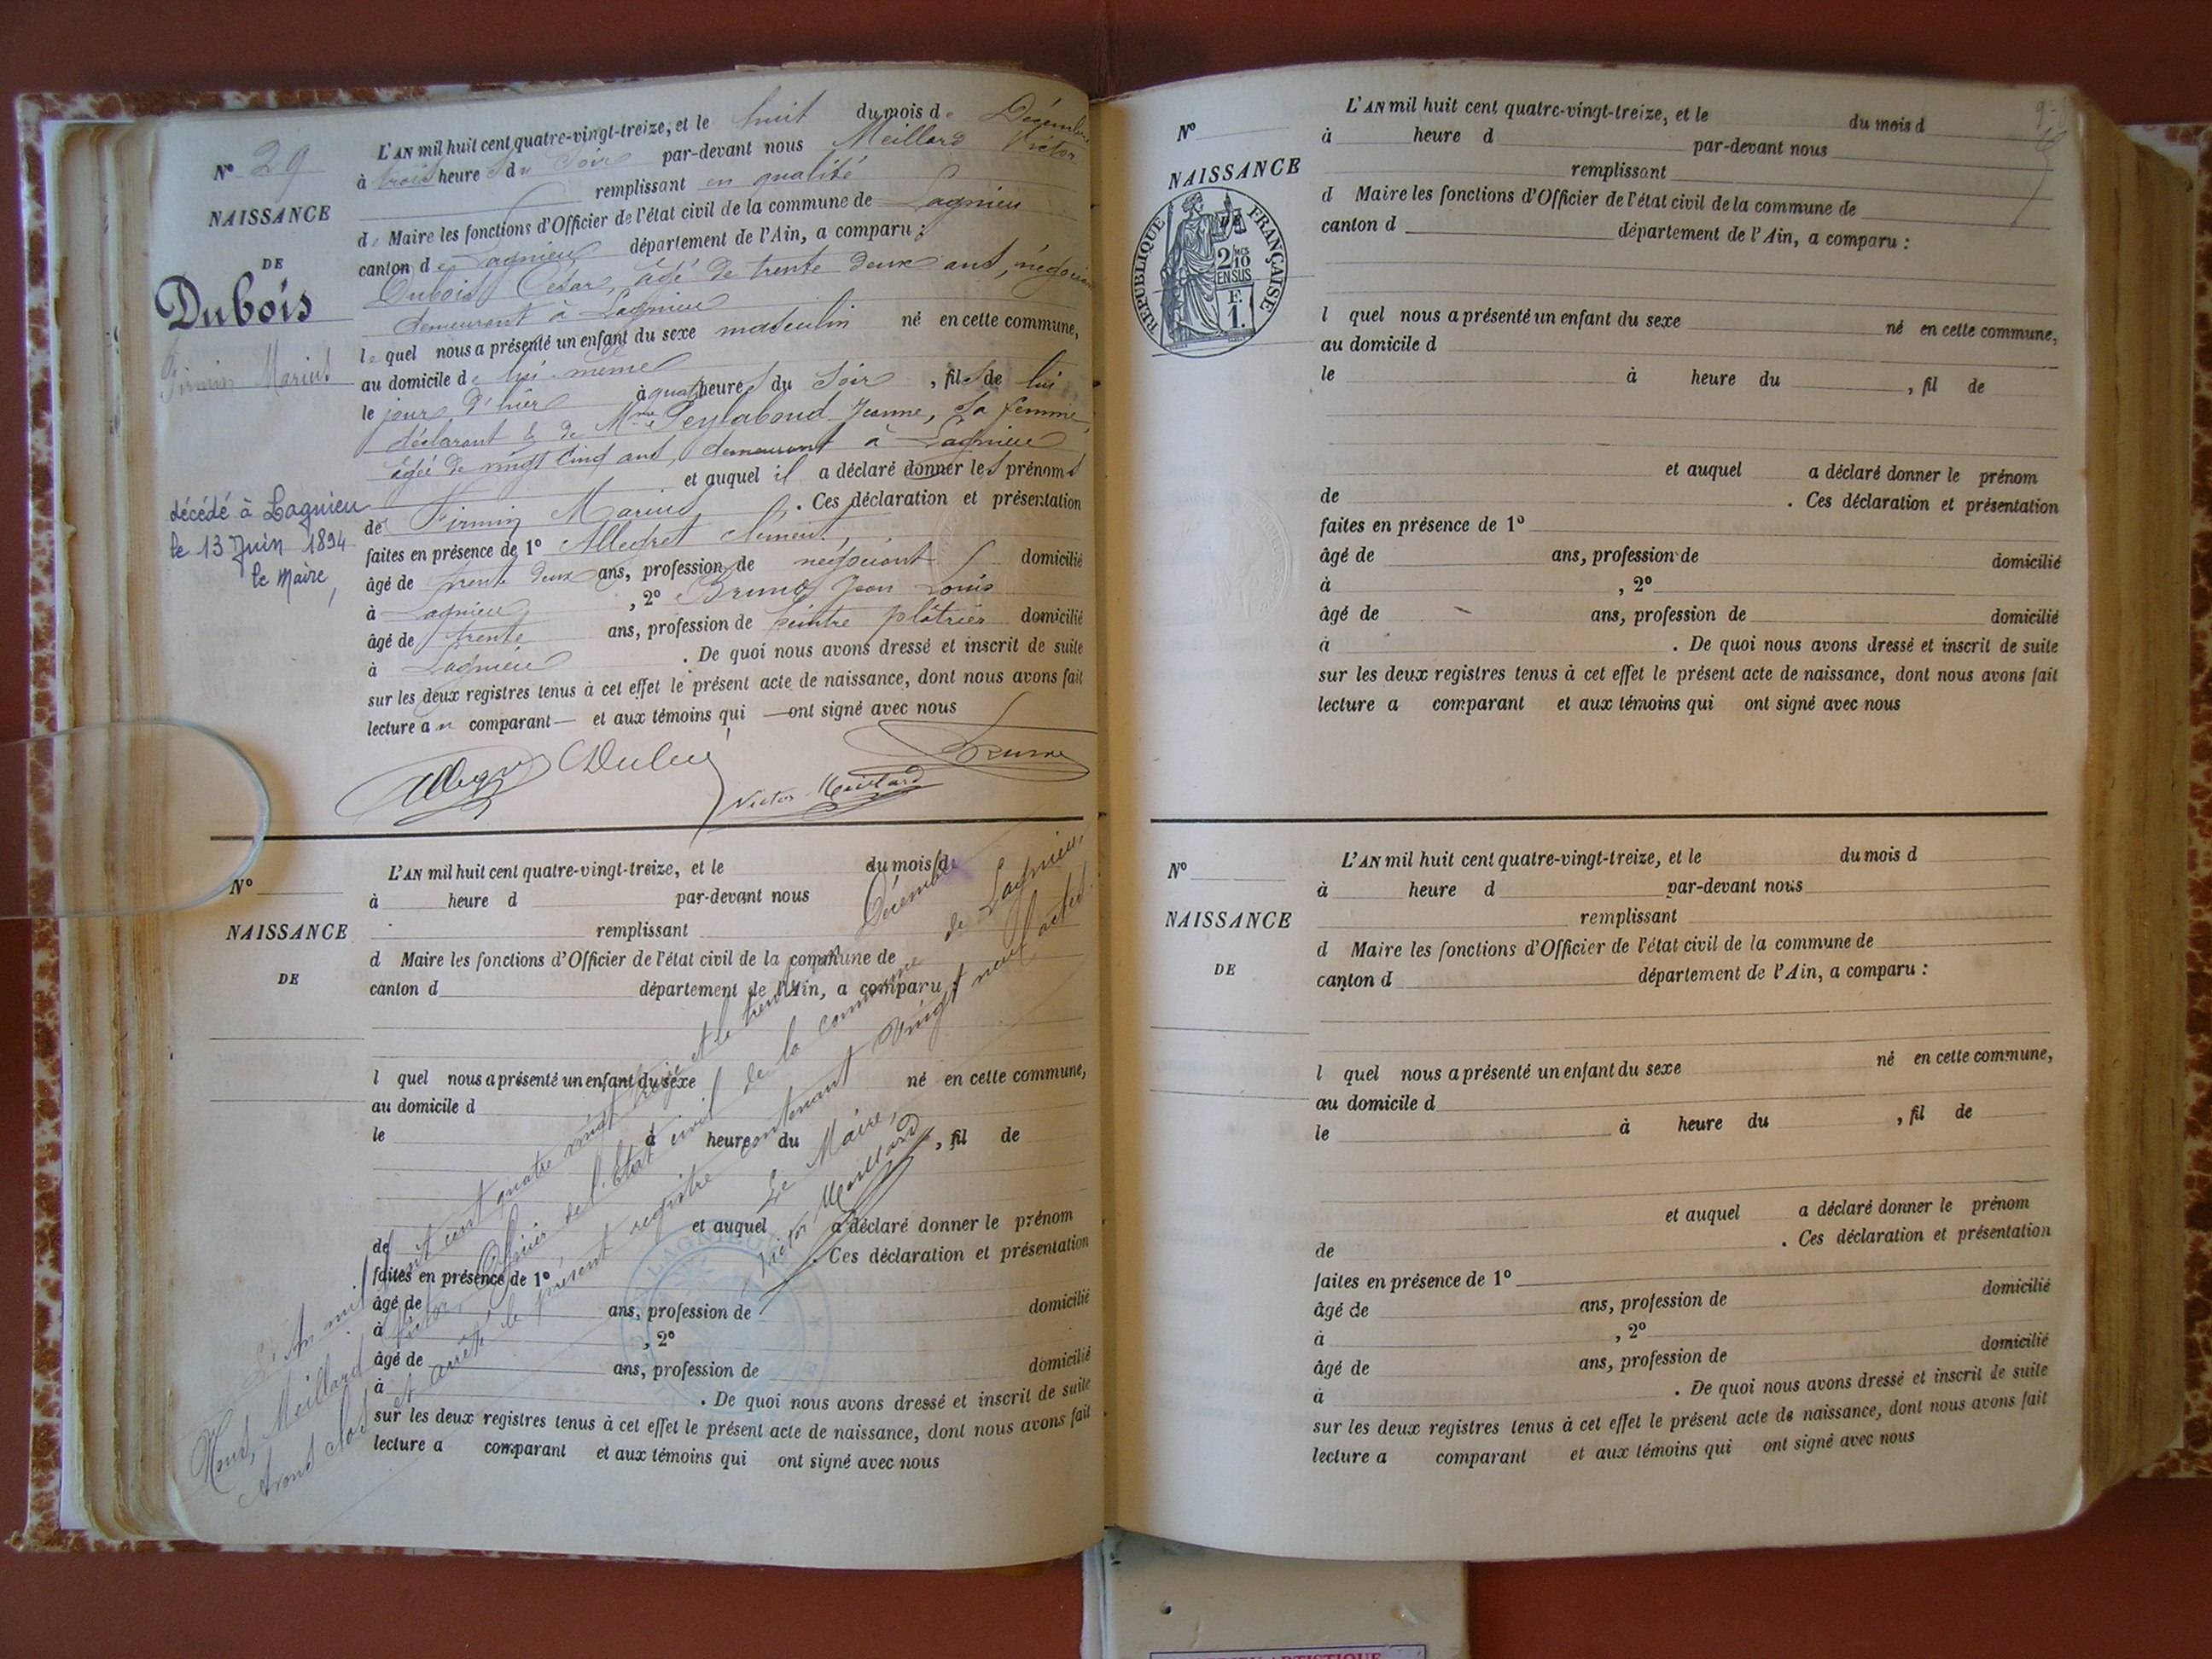 L'AN mil huit cent quatre-vingt-treize, et le huit du mois de Décembre
à trois heures du soir par-devant nous Meillard Victor
remplissant en qualité
de Maire les fonctions d'Officier de l'état civil de la commune de Lagnieu
canton de Lagnieu département de l'Ain, a comparu :
Dubois César, âgé de trente deux ans, négociant
demeurant à Lagnieu
lequel nous a présenté un enfant du sexe masculin né en cette commune,
au domicile de lui-même
le jour d'hier à quatre heures du soir, fils de lui
déclarant & de Mme Jeanne, sa femme,
âgée de vingt cinq ans, demeurant à Lagnieu
et auquel il a déclaré donner les prénoms
de Firmin Marius. Ces déclaration et présentation
faites en présence de 1º Allegret Clément,
âgé de trente deux ans, profession de négociant domicilié
à Lagnieu, 2º Bruno Jean Louis
âgé de trente ans, profession de peintre plâtrier domicilié
à Lagnieu. De quoi nous avons dressé et inscrit de suite
sur les deux registres tenus à cet effet le présent acte de naissance, dont nous avons fait
lecture au comparant — et aux témoins qui — ont signé avec nous
Victor Meillard
Nº 29
NAISSANCE
DE
Dubois
Firmin Marius
décédé à Lagnieu
le 13 Juin 1894
le Maire,
Nº
NAISSANCE
DE
L'AN mil huit cent quatre-vingt-treize, et le du mois d
à heure d par-devant nous
remplissant
d Maire les fonctions d'Officier de l'état civil de la commune de
canton d département de l'Ain, a comparu :
l quel nous a présenté un enfant du sexe né en cette commune,
au domicile d
le à heure du , fil de
et auquel a déclaré donner le prénom
de . Ces déclaration et présentation
faites en présence de 1º
âgé de ans, profession de domicilié
à , 2º
âgé de ans, profession de domicilié
à . De quoi nous avons dressé et inscrit de suite
sur les deux registres tenus à cet effet le présent acte de naissance, dont nous avons fait
lecture a comparant et aux témoins qui ont signé avec nous
L'An mil huit cent quatre vingt treize et le trente un Décembre
Nous, Meillard Victor, Officier de l'Etat civil de la commune de Lagnieu,
avons clos et arrêté le présent registre contenant vingt neuf actes.
Le Maire,
Victor Meillard
LAGNIEU
Nº
NAISSANCE
REPUBLIQUE FRANÇAISE
2/10
EN SUS
F.
1.
L'AN mil huit cent quatre-vingt-treize, et le du mois d
à heure d par-devant nous
remplissant
d Maire les fonctions d'Officier de l'état civil de la commune de
canton d département de l'Ain, a comparu :
l quel nous a présenté un enfant du sexe né en cette commune,
au domicile d
le à heure du , fil de
et auquel a déclaré donner le prénom
de . Ces déclaration et présentation
faites en présence de 1º
âgé de ans, profession de domicilié
à , 2º
âgé de ans, profession de domicilié
à . De quoi nous avons dressé et inscrit de suite
sur les deux registres tenus à cet effet le présent acte de naissance, dont nous avons fait
lecture a comparant et aux témoins qui ont signé avec nous
Nº
NAISSANCE
DE
L'AN mil huit cent quatre-vingt-treize, et le du mois d
à heure d par-devant nous
remplissant
d Maire les fonctions d'Officier de l'état civil de la commune de
canton d département de l'Ain, a comparu :
l quel nous a présenté un enfant du sexe né en cette commune,
au domicile d
le à heure du , fil de
et auquel a déclaré donner le prénom
de . Ces déclaration et présentation
faites en présence de 1º
âgé de ans, profession de domicilié
à , 2º
âgé de ans, profession de domicilié
à . De quoi nous avons dressé et inscrit de suite
sur les deux registres tenus à cet effet le présent acte de naissance, dont nous avons fait
lecture a comparant et aux témoins qui ont signé avec nous